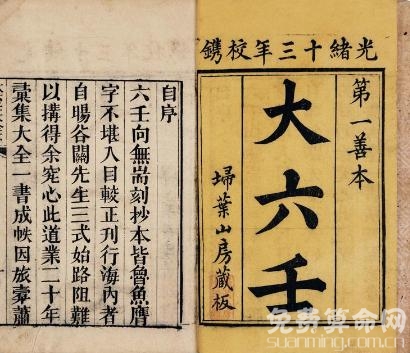 光緒十三年校鐫
第一善本
大六壬
埽葉山房藏板
自序
六壬向無耑刻抄本皆魯魚
字不堪入目較正刊行海內者
自暘谷關先生三式始路阻難
以搆得余寔心此道業二十年
彙集大全一書成帙因旅橐蕭
免费算命网